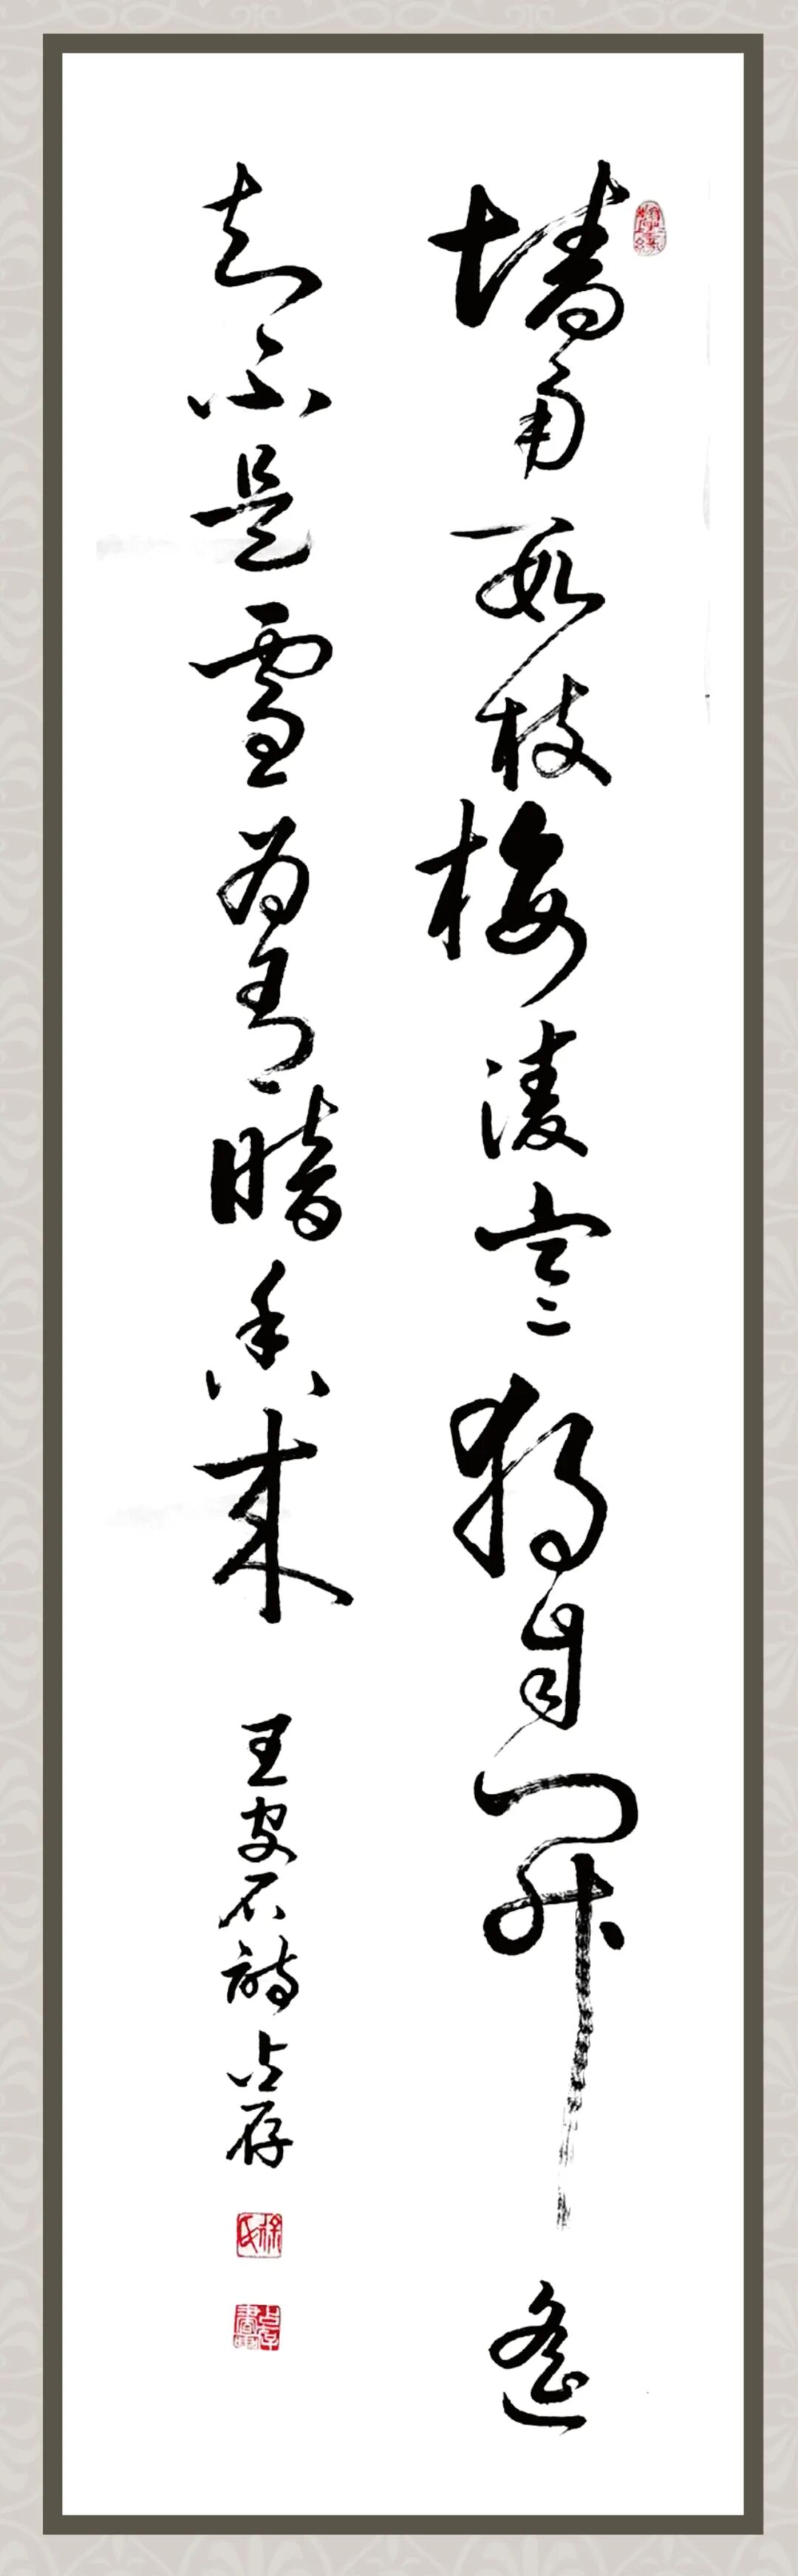 墙角数枝梅凌寒独自开遥
知不是雪为有暗香来
王安石诗 占存
徐氏